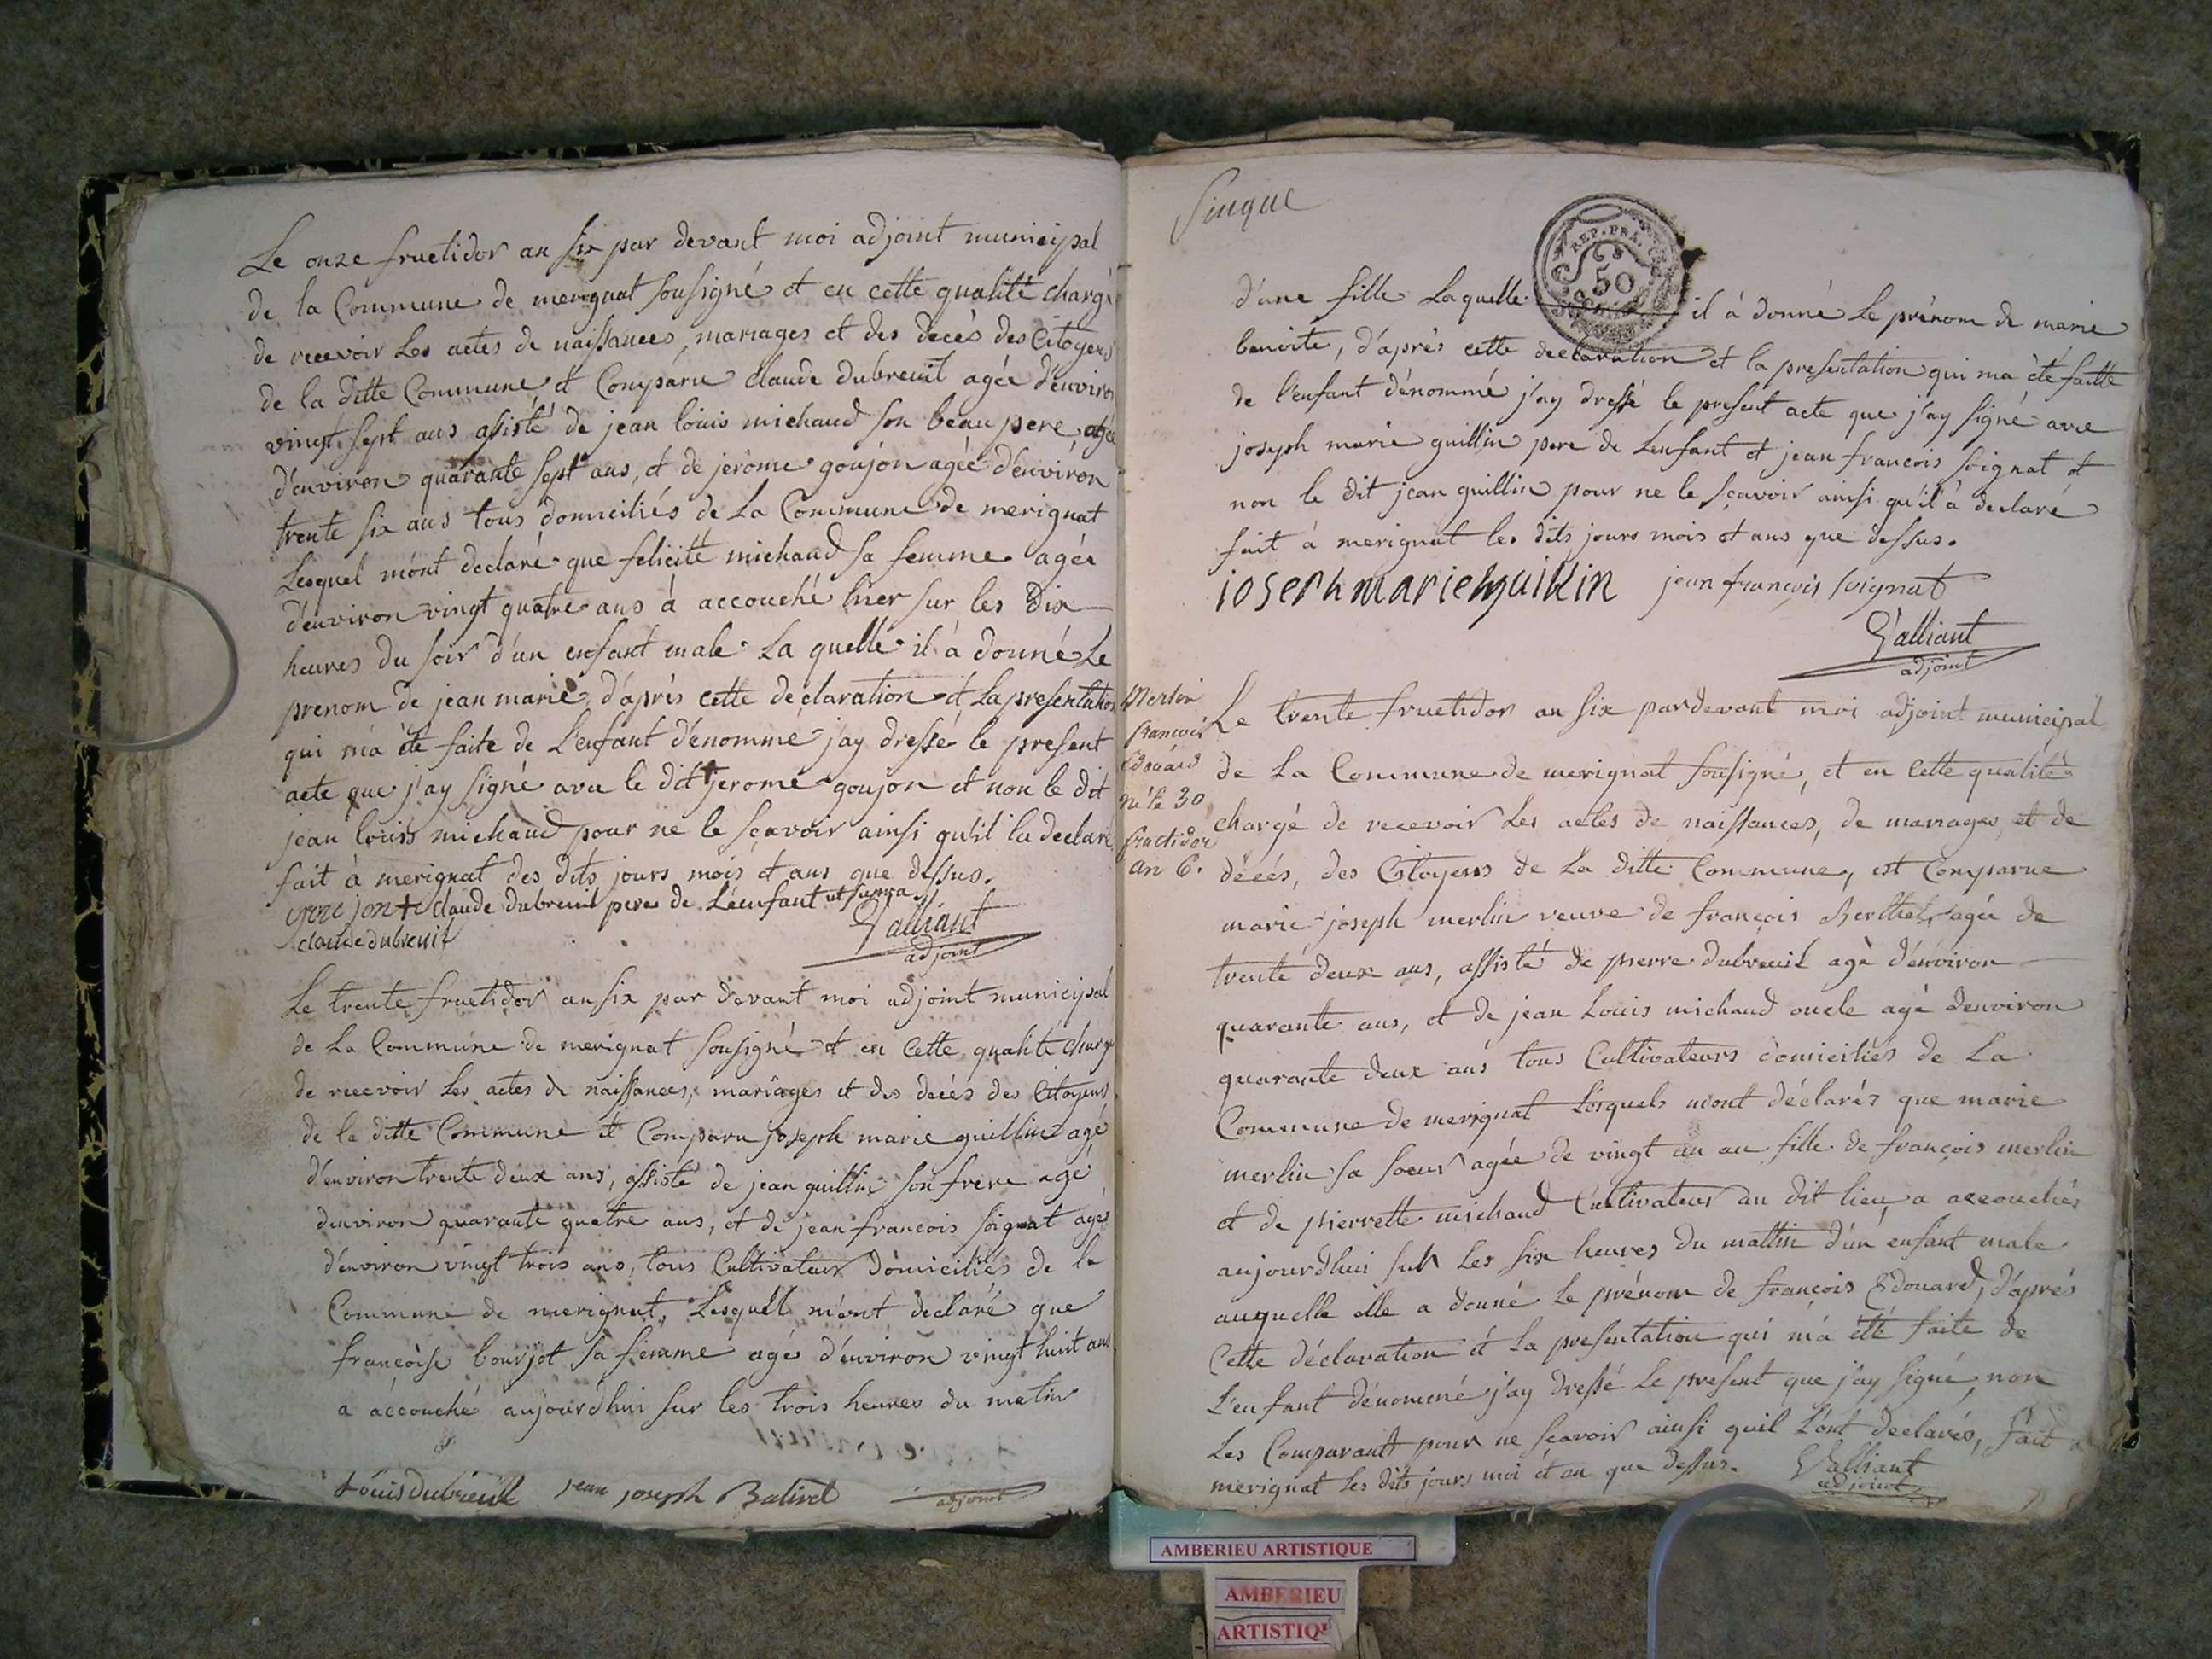 Le onze fructidor an six par devant moi adjoint municipal
de la Commune de merignat sousigné et en cette qualité chargé
de recevoir Les actes de naissances, mariages et des decès des Citoyens
de la ditte Commune et Comparu Claude dubreuil agée d'environ
vingt sept ans assisté de jean louis michaud son beau pere, agé
d'environ quarante sept ans, et de jerome goujon agée d'environ
trente six ans tous domiciliés de La Commune de merignat
Lesquel m'ont declaré que felicité michaud sa femme agée
d'environ vingt quatre ans à accouché hier sur les dix
heures du soir d'un enfant male La quelle il à donné Le
prenom de jean marie, d'après cette declaration et La presentation
qui m'a été faite de L'enfant d'enommé j'ay dressé le present
acte que j'ay signé avec le dit jerome goujon et non le dit
jean louis michaud pour ne le sçavoir ainsi qu'il la declaré
fait à merignat des dits jours mois et ans que dessus.
goujon + claude dubreuil pere de L'enfant ut supra
claude dubreuil
Valliant
adjoint
Le trente fructidor an six par devant moi adjoint municipal
de La Commune de merignat sousigné et en Cette qualité chargé
de recevoir Les actes de naissances, mariages et des decés des Citoyens
de la ditte Commune et Comparu joseph marie guillin agé
d'environ trente deux ans, assisté de jean guillin son frere agé
d'environ quarante quatre ans, et de jean francois soignat agés
d'environ vingt trois ans, tous Cultivateurs domiciliés de la
Commune de merignat, Lesquels m'ont declaré que
françoise bourjot sa femme agé d'environ vingt huit ans
a accouché aujourdhui sur les trois heures du matin
Louis Dubreuille jean joseph Balivet
adjoint
d'une fille Laquelle il à donné Le prénom de marie
REP. FRA.
50
benoite, d'après cette declaration et la presentation qui ma été faitte
de l'enfant dénommé j'ay dressé le present acte que j'ay signé avec
joseph marie guillin pere de Lenfant et jean francois soignat et
non le dit jean guillin pour ne le sçavoir ainsi qu'il à declaré
fait à merignat les dits jours mois et ans que dessus.
jean françois soignat
Valliant
adjoint
Merlin
francois
Edouard
né le 30
fructidor
an 6.
Le trente fructidor an six pardevant moi adjoint municipal
de La Commune de merignat sousigné, et en Cette qualité
chargé de recevoir Les actes de naissances, de mariages et de
décés, des Citoyens de La ditte Commune, est Comparue
marie joseph merlin veuve de françois Berthet, agée de
trente deux ans, assisté de pierre dubreuil agé d'environ
quarante ans, et de jean Louis michaud oncle agé denviron
quarante deux ans tous Cultivateurs domiciliés de La
Commune de merignat Lesquels m'ont déclarés que marie
merlin sa soeur agée de vingt un an fille de françois merlin
et de pierrette michaud Cultivateur au dit lieu, a accouchés
aujourdhui sur Les six heures du mattin d'un enfant male
auquelle elle a donné Le prénom de françois Edouard, d'aprés
Cette déclaration et La presentation qui m'a été faite de
L'enfant dénommé j'ay dressé Le present que j'ay signé, non
Les Comparants pour ne sçavoir ainsi quil L'ont declarés, fait a
merignat Les dits jours moi et an que dessus. Valliant
adjoint
AMBERIEU ARTISTIQUE
AMBERIEU
ARTISTIQU